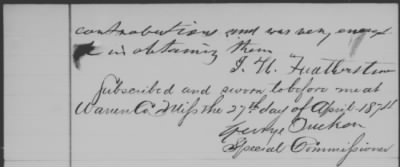 contrabutions and was very
in obtaining them
J. H. Featherstun
Subscribed and sworn to before me at
Warren Co. Miss the 27th day of April 187
George Tucker
Special Commissioner